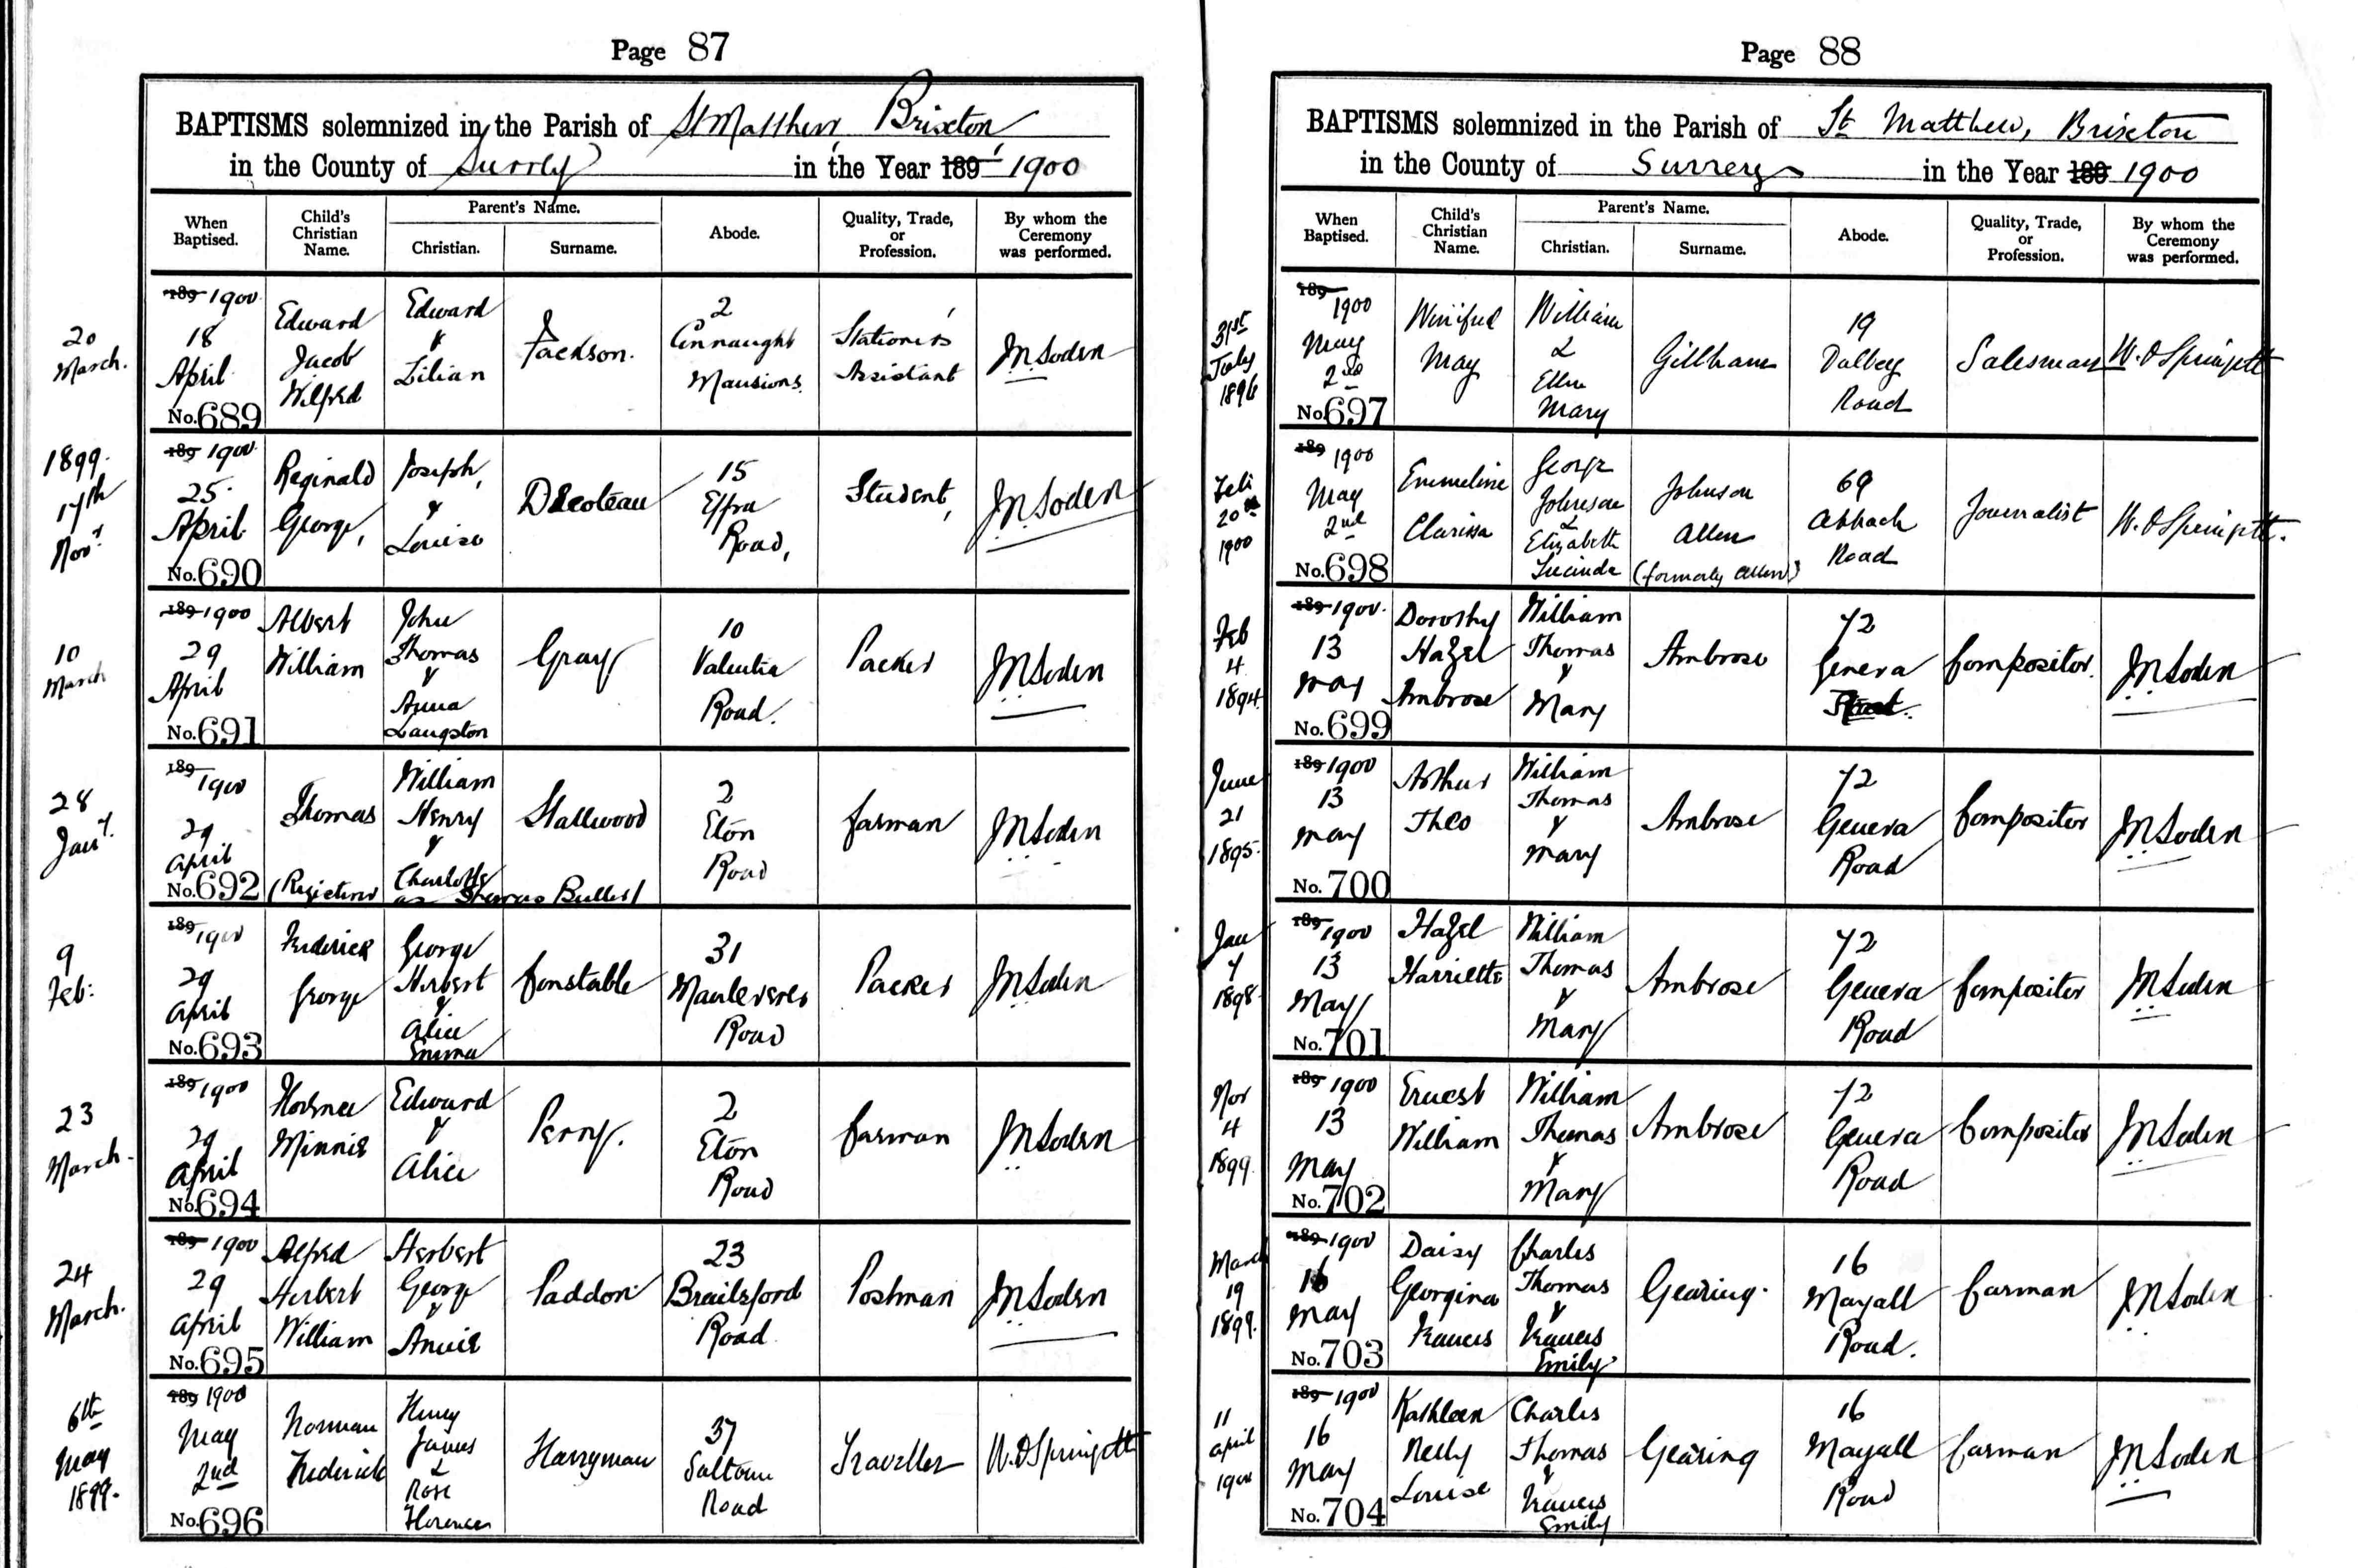 Page 87
BAPTISMS solemnized in the Parish of St Matthew, Brixton
in the County of Surrey in the Year 189 1900
When Baptised.
Child's Christian Name.
Parent's Name.
Christian.
Surname.
Abode.
Quality, Trade, or Profession.
By whom the Ceremony was performed.
20
March.
189 1900
18
April
No. 689
Edward
Jacob
Wilfred
Edward
&
Lilian
Jackson.
2
Connaught
Mansions
Stationer's
Assistant
JN Soden
1899.
17th
Novr
189 1900
25
April
No. 690
Reginald
George,
Joseph,
&
Louise
Decoteau
15
Effra
Road,
Student,
JN Soden
10
March
189 1900
29
April
No. 691
Albert
William
John
Thomas
&
Anna
Langston
Gray
10
Valentia
Road.
Packer
JN Soden
28
Jany.
189 1900
29
April
No. 692
Thomas
William
Henry
&
Charlotte
(Registered as Thomas Butler)
Stallwood
2
Eton
Road
Carman
JN Soden
9
Feb:
189 1900
29
April
No. 693
Frederick
George
George
Herbert
&
Alice
Emma
Constable
31
Mauleverer
Road
Packer
JN Soden
23
March
189 1900
29
April
No. 694
Florence
Minnie
Edward
&
Alice
Perry.
2
Eton
Road
Carman
JN Soden
24
March.
189 1900
29
April
No. 695
Alfred
Herbert
William
Herbert
George
&
Annie
Paddon
23
Brailsford
Road
Postman
JN Soden
6th
May
1899.
189 1900
May
2nd
No. 696
Norman
Frederick
Henry
James
&
Rose
Florence
Harryman
37
Saltoun
Road
Traveller
W. D Springett
Page 88
BAPTISMS solemnized in the Parish of St Matthew, Brixton
in the County of Surrey in the Year 189 1900
When Baptised.
Child's Christian Name.
Parent's Name.
Christian.
Surname.
Abode.
Quality, Trade, or Profession.
By whom the Ceremony was performed.
31st
July
1896
189 1900
May
2nd
No. 697
Winifred
May
William
&
Ellen
Mary
Gillham
19
Dalberg
Road
Salesman
W. D Springett
Feb
20th
1900
189 1900
May
2nd
No. 698
Emmeline
Clarissa
George
Johnson
&
Elizabeth
Lucinda
Johnson
Allen
(formerly Allen)
69
Road
Journalist
W. D Springett.
Feb
4
1894
189 1900.
13
May
No. 699
Dorothy
Hazel
Ambrose
William
Thomas
&
Mary
Ambrose
72
Geneva
Compositor.
JN Soden
June
21
1895
189 1900
13
May
No. 700
Arthur
Theo
William
Thomas
&
Mary
Ambrose
72
Geneva
Road
Compositor
JN Soden
Jan
7
1898
189 1900
13
May
No. 701
Hazel
Harriette
William
Thomas
&
Mary
Ambrose
72
Geneva
Road
Compositor
JN Soden
Nov
4
1899
189 1900
13
May
No. 702
Ernest
William
William
Thomas
&
Mary
Ambrose
72
Geneva
Road
Compositor
JN Soden
March
19
1899.
189 1900
16
May
No. 703
Daisy
Georgina
Frances
Charles
Thomas
&
Frances
Emily
Gearing.
16
Mayall
Road.
Carman
JN Soden
11
April
1900
189 1900
16
May
No. 704
Kathleen
Nelly
Louise
Charles
Thomas
&
Frances
Emily
Gearing
16
Mayall
Road
Carman
JN Soden